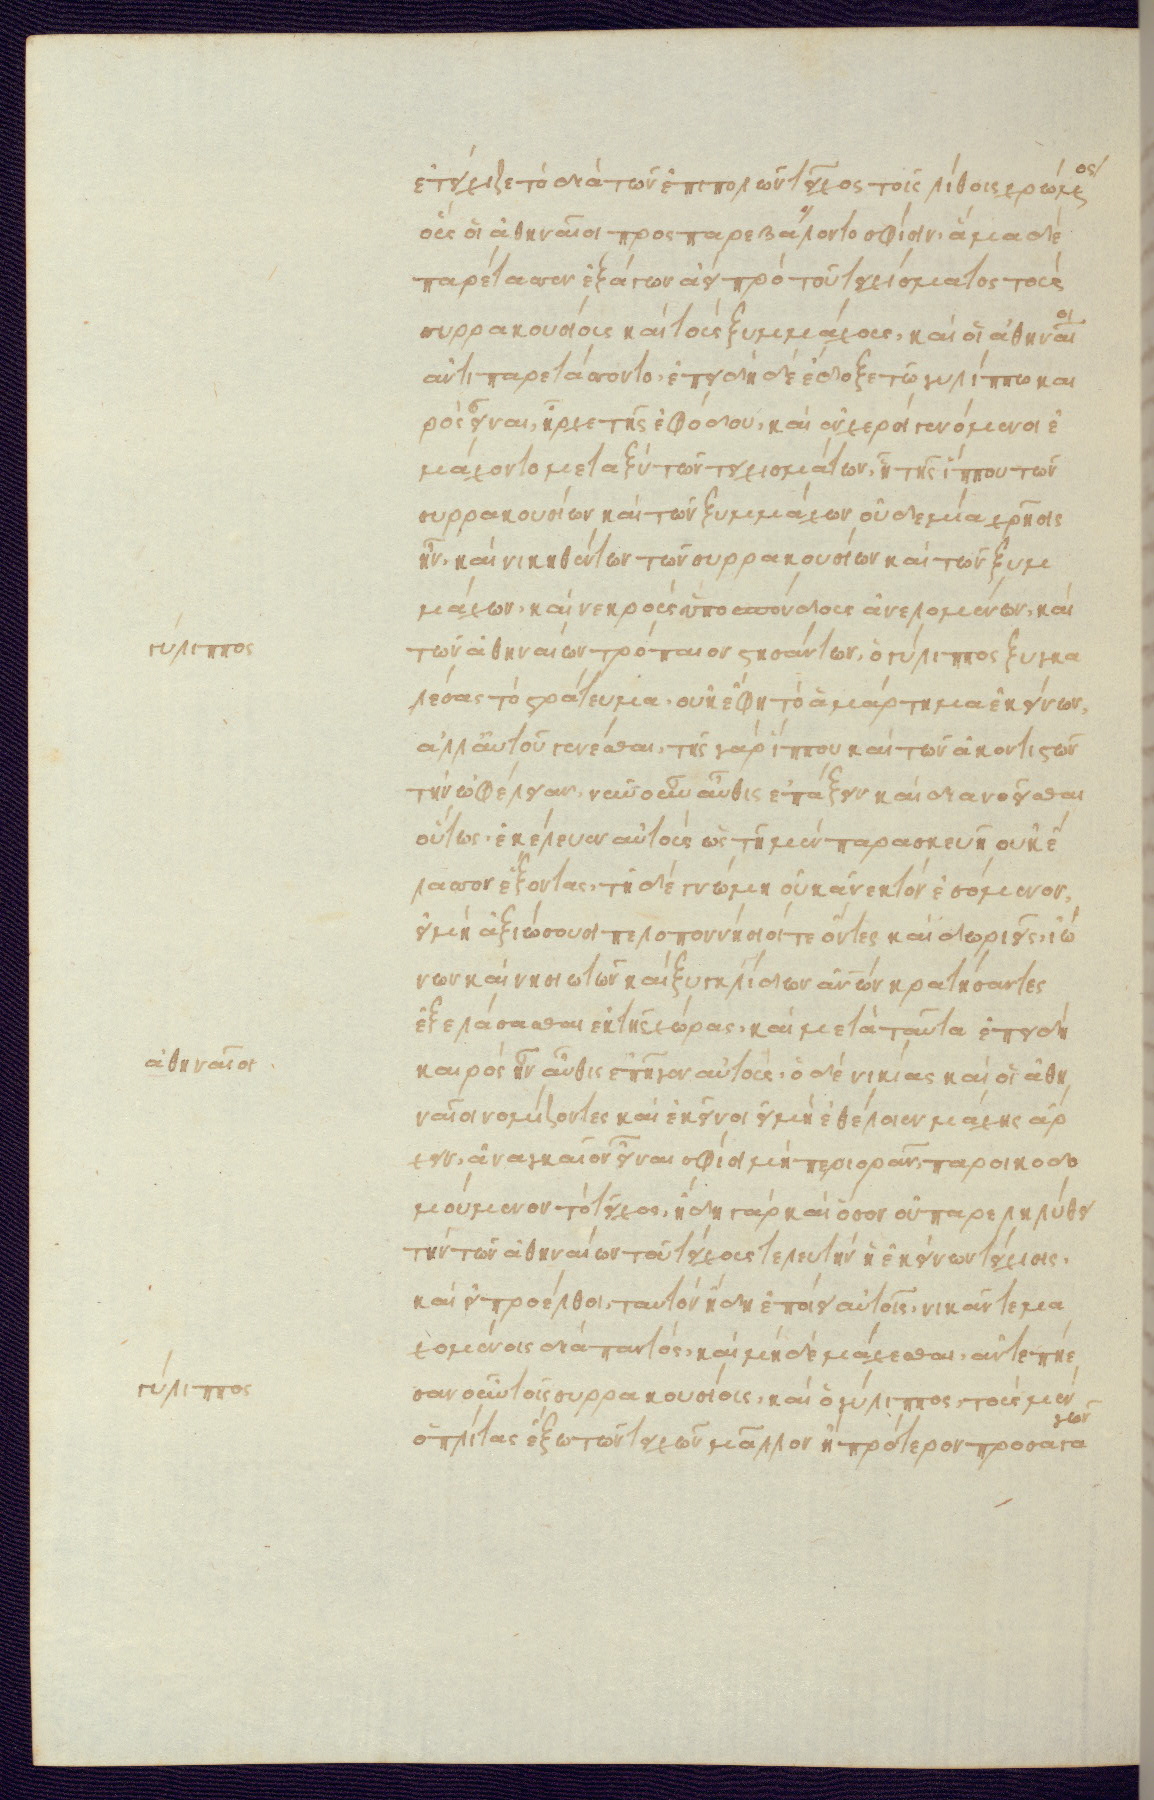 ἐτείχιζε τὸ διὰ τῶν ἐπιπολῶν τεῖχος τοῖς λίθοις χρώμενος
οὓς οἱ ἀθηναῖοι προσπαρεβάλοντο σφίσιν. ἅμα δὲ
παρέτασσεν ἐξάγων ἀεὶ πρὸ τοῦ τειχίσματος τοὺς
συρρακουσίους καὶ τοὺς ξυμμάχους, καὶ οἱ ἀθηναῖοι
ἀντιπαρετάσσοντο. ἐπειδὴ δὲ ἔδοξε τῷ γυλίππῳ και
ρὸς εἶναι, ἦρχε τῆς ἐφόδου, καὶ ἐν χερσὶ γενόμενοι ἐ
μάχοντο μεταξὺ τῶν τειχισμάτων, ᾗ τῆς ἵππου τῶν
συρρακουσίων καὶ τῶν ξυμμάχων οὐδεμία χρῆσις
ἦν. καὶ νικηθέντων τῶν συρρακουσίων καὶ τῶν ξυμ
μάχων, καὶ νεκροὺς ὑποσπόνδους ἀνελομένων, καὶ
γύλιππος
τῶν ἀθηναίων τρόπαιον στησάντων, ὁ γύλιππος ξυγκα
λέσας τὸ στράτευμα, οὐκ ἔφη τὸ ἁμάρτημα ἐκείνων,
ἀλλ' αὑτοῦ γενέσθαι. τῆς γὰρ ἵππου καὶ τῶν ἀκοντιστῶν
τὴν ὠφέλειαν, νῦν οὖν αὖθις ἐπάξειν καὶ διανοεῖσθαι
οὕτως. ἐκέλευεν αὐτοὺς ὡς τῇ μὲν παρασκευῇ οὐκ ἔ
λασσον ἕξοντας, τῇ δὲ γνώμῃ οὐκ ἀνεκτὸν ἐσόμενον,
εἰ μὴ ἀξιώσουσι πελοποννήσιοί τε ὄντες καὶ δωριεῖς, ἰώ
νων καὶ νησιωτῶν καὶ ξυγκλύδων ἀνῶν κρατήσαντες
ἐξελάσασθαι ἐκ τῆς χώρας. καὶ μετὰ ταῦτα ἐπειδὴ
ἀθηναῖοι
καιρὸς ἦν αὖθις ἐπῆγεν αὐτούς. ὁ δὲ νικίας καὶ οἱ ἀθη
ναῖοι νομίζοντες καὶ ἐκεῖνοι εἰ μὴ ἐθέλοιεν μάχης ἄρ
χειν, ἀναγκαῖον εἶναι σφίσι μὴ περιορᾶν παροικοδο
μούμενον τὸ τεῖχος. ἤδη γὰρ καὶ ὅσον οὐ παρεληλύθει
τὴν τῶν ἀθηναίων τοῦ τείχους τελευτὴν ἡ ἐκείνων τείχισις.
καὶ εἰ προέλθοι, ταυτὸν ἤδη ἐποίει αὐτοῖς, νικᾶν τε μα
χομένοις διὰ παντός, καὶ μηδὲ μάχεσθαι. ἀντεπῄε
γύλιππος
σαν οὖν τοῖς συρρακουσίοις, καὶ ὁ γύλιππος, τοὺς μὲν
ὁπλίτας ἔξω τῶν τειχῶν μᾶλλον ἢ πρότερον προσαγαγὼν